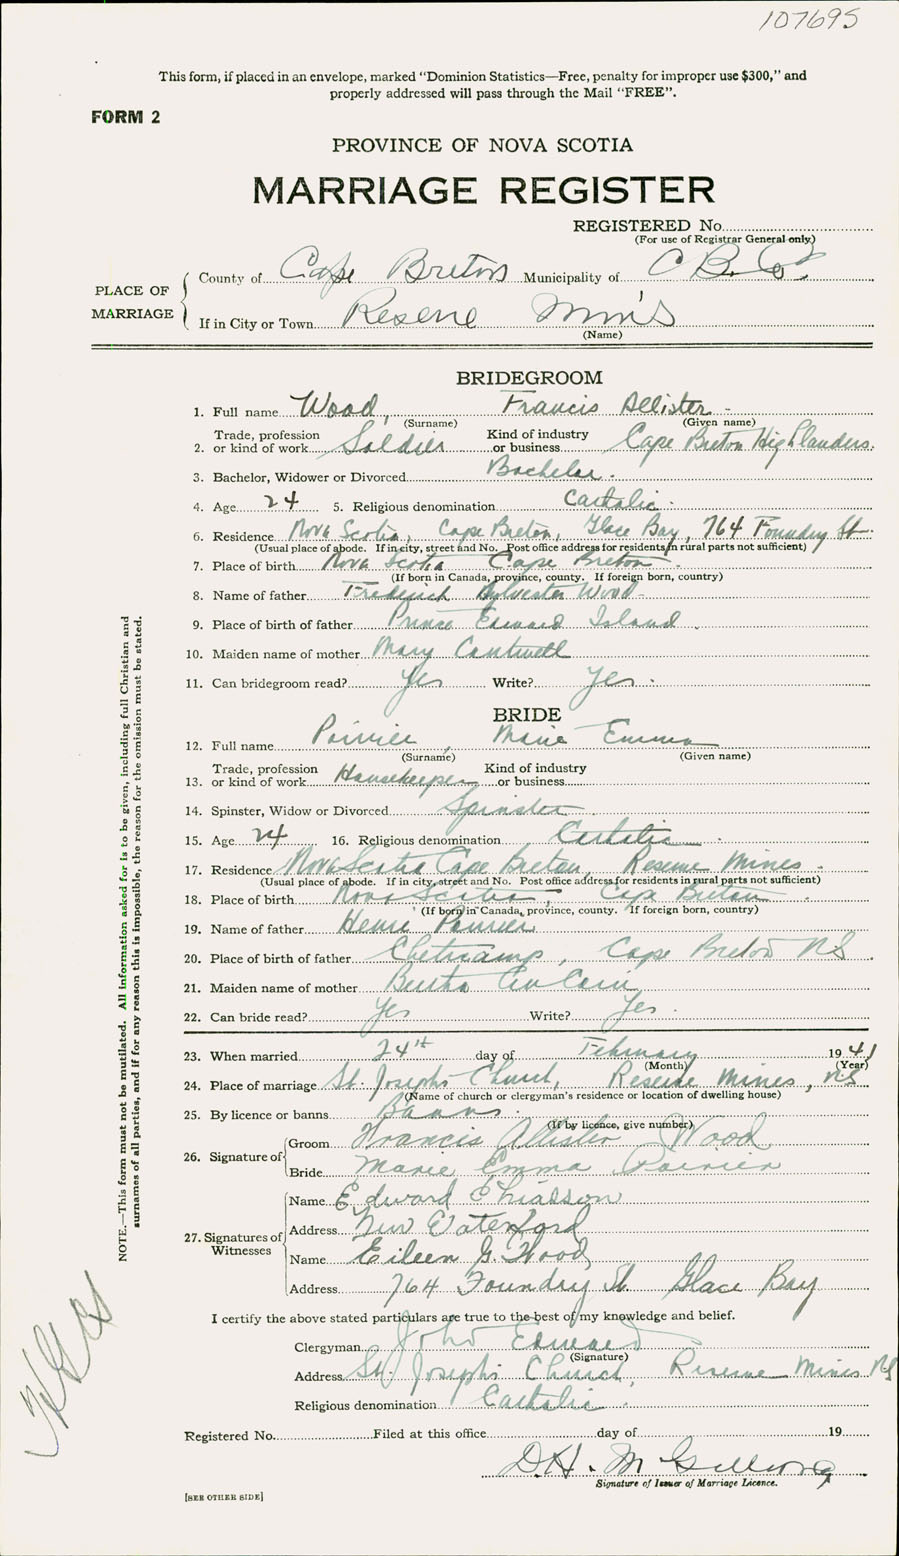 107695
This form, if placed in an envelope, marked “Dominion Statistics—Free, penalty for improper use $300,” and
properly addressed will pass through the Mail “FREE”.
FORM 2
PROVINCE OF NOVA SCOTIA
MARRIAGE REGISTER
REGISTERED No.
(For use of Registrar General only.)
PLACE OF MARRIAGE
County of Cape Breton Municipality of C B. Co.
If in City or Town Reserve Mins
(Name)
BRIDEGROOM
1. Full name Wood, Francis Allister -
(Surname) (Given name)
2. Trade, profession or kind of work Soldier Kind of industry or business Cape Breton Highlanders.
3. Bachelor, Widower or Divorced Bachelor.
4. Age 24 5. Religious denomination Catholic.
6. Residence Nova Scotia, Cape Breton, Glace Bay, 764 Foundry St.
(Usual place of abode. If in city, street and No. Post office address for residents in rural parts not sufficient)
7. Place of birth Nova Scotia Cape Breton.
(If born in Canada, province, county. If foreign born, country)
8. Name of father Frederick Sylvester Wood
9. Place of birth of father Prince Edward Island.
10. Maiden name of mother Mary Cantwell
11. Can bridegroom read? Yes Write? Yes.
BRIDE
12. Full name Poirier, Marie Emma
(Surname) (Given name)
13. Trade, profession or kind of work Housekeeper Kind of industry or business
14. Spinster, Widow or Divorced Spinster
15. Age 24 16. Religious denomination Catholic.
17. Residence Nova Scotia Cape Breton, Reserve Mines.
(Usual place of abode. If in city, street and No. Post office address for residents in rural parts not sufficient)
18. Place of birth Nova Scotia, Cape Breton.
(If born in Canada, province, county. If foreign born, country)
19. Name of father Henri Poirier
20. Place of birth of father Chetticamp, Cape Breton NS.
21. Maiden name of mother Bertha
22. Can bride read? Yes Write? Yes.
23. When married 24th day of February 1941
(Month) (Year)
24. Place of marriage St. Josephs Church, Reserve Mines, NS
(Name of church or clergyman's residence or location of dwelling house)
25. By licence or banns Banns.
(If by licence, give number)
26. Signature of
Groom Francis Allister Wood
Bride Marie Emma Poirier
27. Signatures of Witnesses
Name Edward Chiasson
Address New Waterford
Name Eileen G. Wood
Address 764 Foundry St Glace Bay
I certify the above stated particulars are true to the best of my knowledge and belief.
Clergyman John Edward
(Signature)
Address St. Josephs Church, Reserve Mines NS
Religious denomination Catholic.
Registered No. Filed at this office day of 19
D.H. McGillivray
Signature of Issuer of Marriage Licence.
[SEE OTHER SIDE]
NOTE.—This form must not be mutilated. All information asked for is to be given, including full Christian and
surnames of all parties, and if for any reason this is impossible, the reason for the omission must be stated.